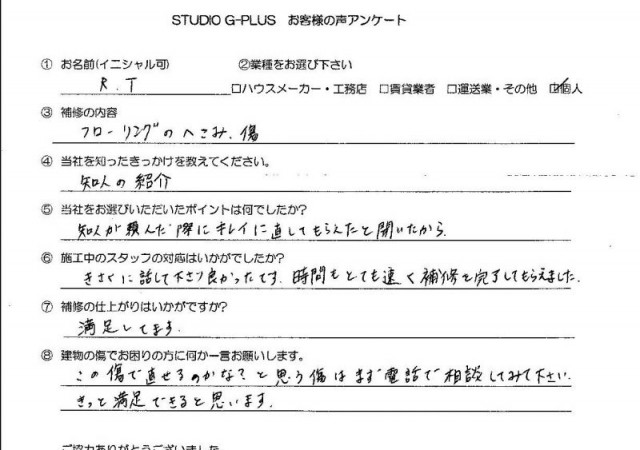 STUDIO G-PLUS お客様の声アンケート
① お名前(イニシャル可) ②業種をお選び下さい
R.T □ハウスメーカー・工務店 □賃貸業者 □運送業・その他 ☑個人
③ 補修の内容
フローリングのへこみ、傷
④ 当社を知ったきっかけを教えてください。
知人の紹介
⑤ 当社をお選びいただいたポイントは何でしたか?
知人が頼んだ際にキレイに直してもらえたと聞いたから
⑥ 施工中のスタッフの対応はいかがでしたか?
きさくに話して下さり良かったです。時間もとても速く補修を完了してもらえました。
⑦ 補修の仕上がりはいかがですか?
満足してます。
⑧ 建物の傷でお困りの方に何か一言お願いします。
この傷で直せるのかな?と思う傷はまず電話で相談してみて下さい。
きっと満足できると思います。
ご協力ありがとうございました